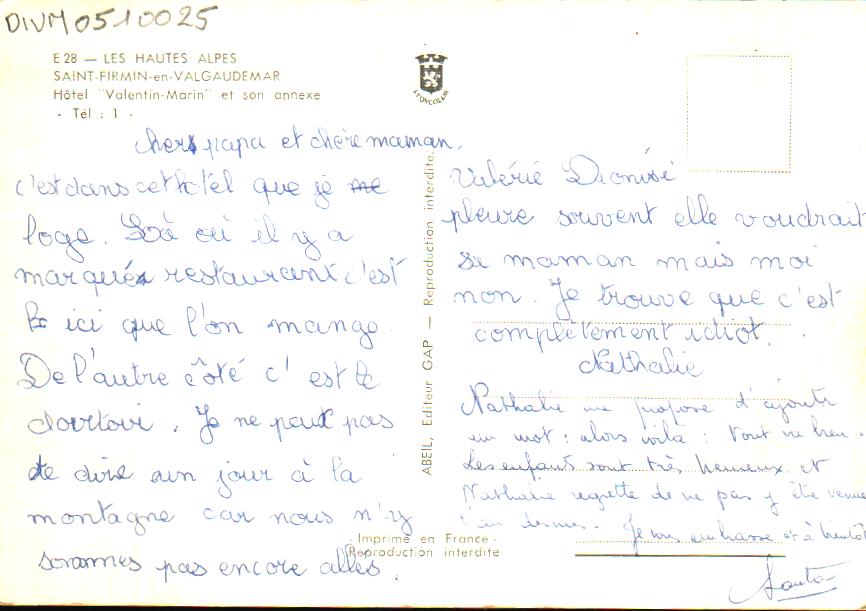 DIVM0510025
E 28 — LES HAUTES ALPES
SAINT-FIRMIN-en-VALGAUDEMAR
Hôtel "Valentin-Marin" et son annexe
- Tél : 1 -
LYONCOLOR
chers papa et chère maman.
c'est dans cet hotel que je me
loge. Là où il y a
marqué restaurent c'est
ici que l'on mange.
De l'autre côté c'est le
dortoir. Je ne peux pas
te dire un jour à la
montagne car nous n'y
sommes pas encore allés.
ABEIL, Editeur GAP — Reproduction interdite.
Valérie Dionisé
pleure souvent elle voudrait
sa maman mais moi
non. Je trouve que c'est
complètement idiot.
Nathalie
Nathalie me propose d'ajouter
un mot : alors voila : tout va bien.
Les enfants sont très heureux et
Nathalie regrette de ne pas y être venue
l'an dernier. Je vous embrasse et à bientôt
- Imprimé en France -
Reproduction interdite